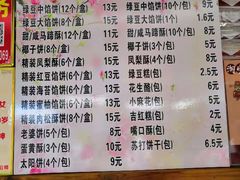 绿豆中馅饼(12个/盒) 13元 绿豆中馅饼(1个) 1.2元
绿豆大馅饼(6个/盒) 11元 绿豆大馅饼(1个) 2元
甜/咸马蹄酥(12个/盒) 15元 甜/咸马蹄酥(6个/包) 8元
椰子饼(8个/盒) 11元 椰子饼(5个/包) 6元
精装凤梨酥(6个/盒) 11元 凤梨酥(4个/包) 6元
精装红豆馅饼(6个/盒) 11元 绿豆糕(/包) 5元
精装海苔馅饼(6个/盒) 11元 花生酪(/包) 5元
精装蜜柚馅饼(6个/盒) 11元 小麻花(/包) 5元
精装肉松馅饼(6个/盒) 11元 吉红糕(/包) 5元
老婆饼(5个/包) 6元 嘴口酥(/包) 5元
蛋黄酥(3个/包) 6元 苏打饼干(/包) 6.5元
太阳饼(4个/包) 9元